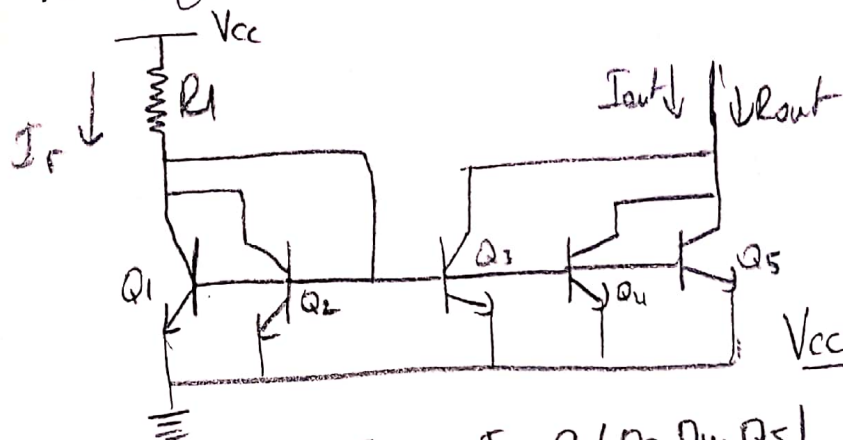 Vcc
R1
Ir
Iout
Rout
Q1
Q2
Q3
Q4
Q5
Vcc